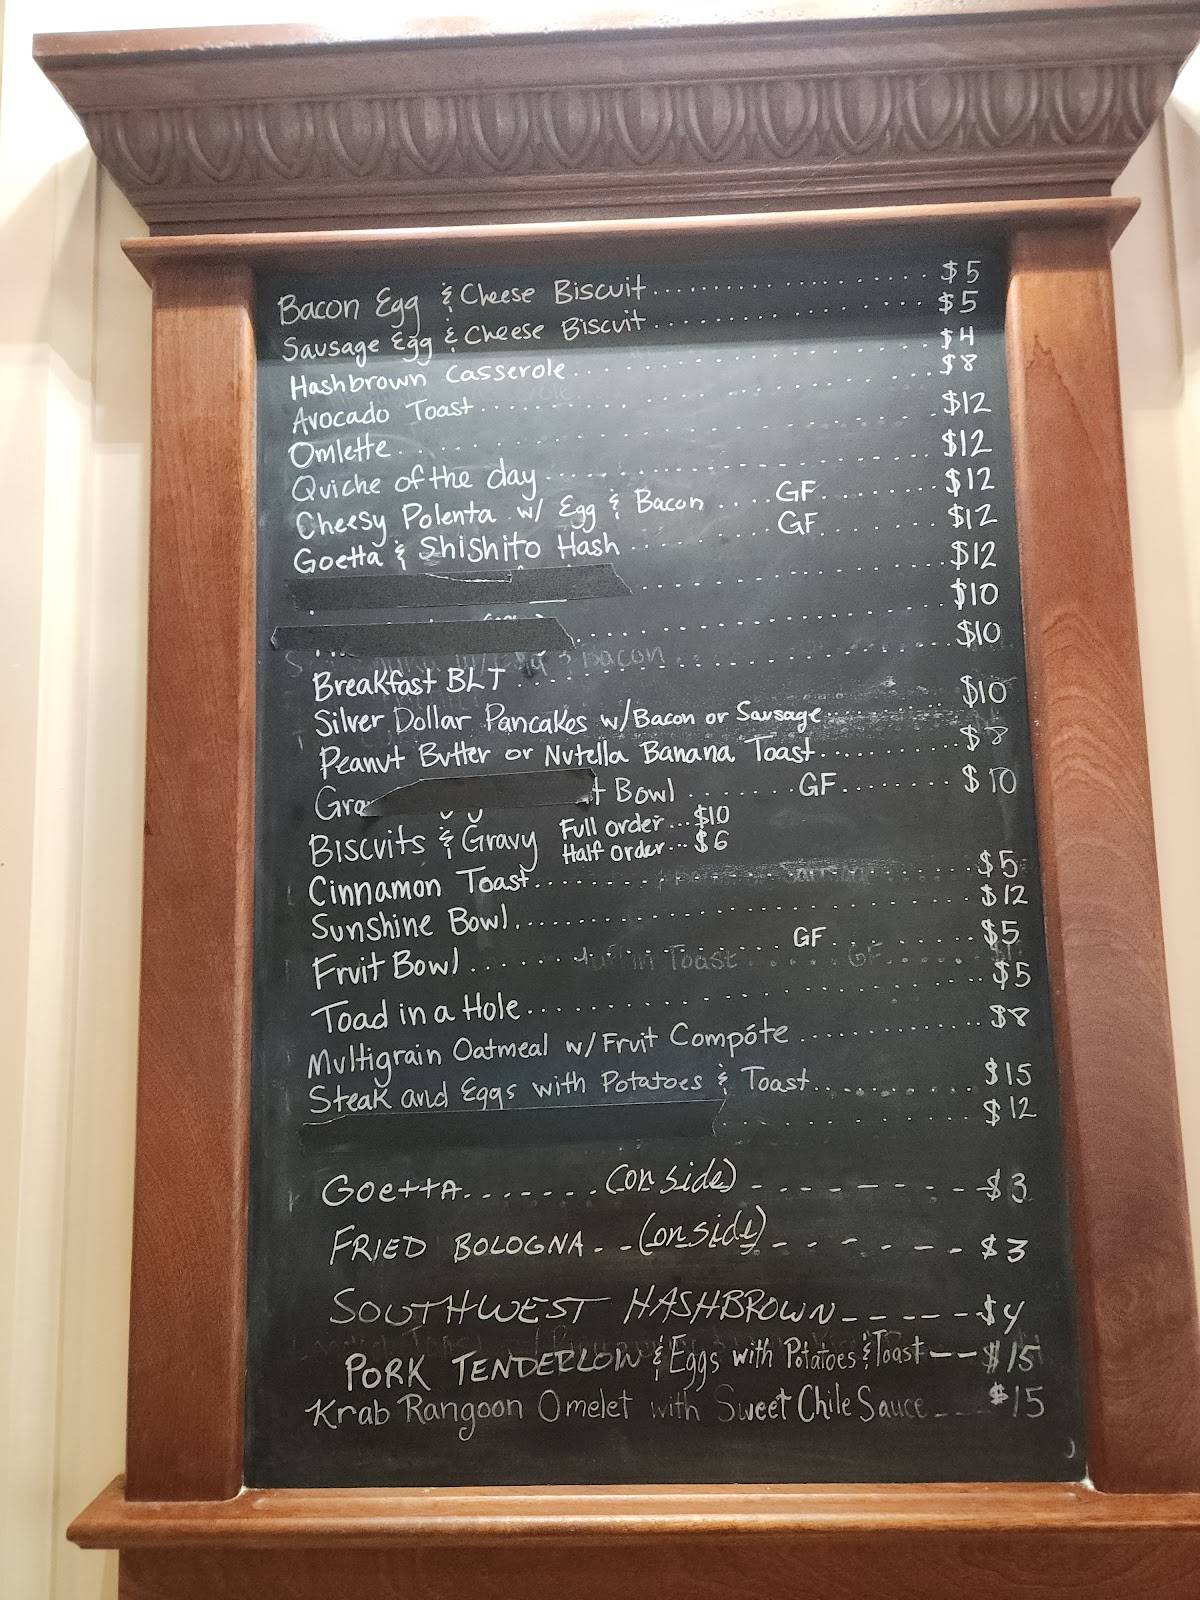 Bacon Egg & Cheese Biscuit.................. $5
Sausage Egg & Cheese Biscuit.................. $5
Hashbrown Casserole.................. $4
Avocado Toast.................. $8
Omlette.................. $12
Quiche of the day.................. $12
Cheesy Polenta w/ Egg & Bacon .... GF........ $12
Goetta & Shishito Hash .......... GF........ $12
.................. $12
.................. $10
Breakfast BLT .................. $10
Silver Dollar Pancakes w/Bacon or Sausage.......... $10
Peanut Butter or Nutella Banana Toast.......... $8
Bowl ....... GF........ $10
Biscuits & Gravy Full order...$10
Half order...$6
Cinnamon Toast.................. $5
Sunshine Bowl.................. $12
Fruit Bowl.......... GF........ $5
Toad in a Hole.................. $5
Multigrain Oatmeal w/Fruit Compóte.......... $8
Steak and Eggs with Potatoes & Toast.......... $15
.................. $12
Goetta.......(on side) - - - - - - - $3
FRIED BOLOGNA - - (on side) - - - - - - $3
SOUTHWEST HASHBROWN - - - - - $4
PORK TENDERLOIN & Eggs with Potatoes & Toast - - $15
Krab Rangoon Omelet with Sweet Chile Sauce - - $15